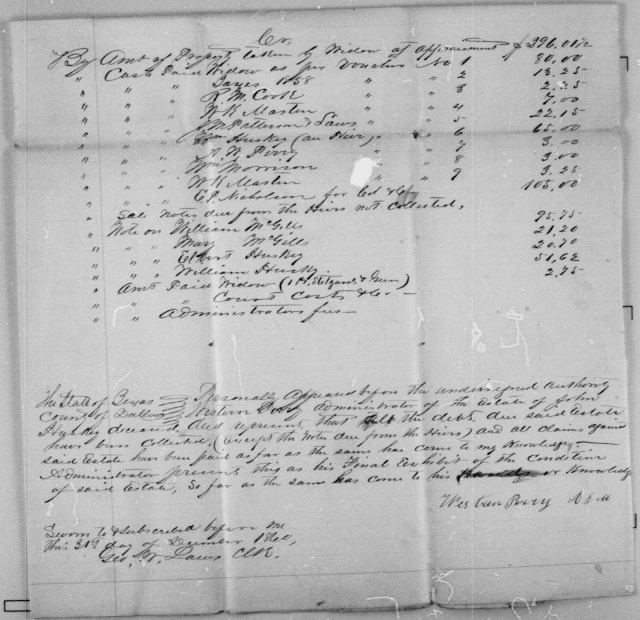 Cr.
By Amt of Property taken by Widow at appraisement $396.01 1/2
" Cash Paid Widow as per Voucher No 1 80.00
" " " Taxes 1858 " " 2 13.25
" " " R. M. Cook " " 3 2.25
" " " W. K. Masten " " 4 7.00
" " " J M Patterson & Laws " " 5 22.15
" " " Huskey (an Heir) " " 6 65.00
" " " Perry " " 7 3.00
" " " Wm Morrison " " 8 3.00
" " " W K Masten " " 9 3.25
" " " E. P. Nicholson for 105.00
" Sale Notes due from the Heirs not Collected,
" Note on William McGills 95.75
" " " Mary McGills 21.20
" " " Huskey 20.70
" " " William Huskey 51.62
" Amt Paid Widow 2.75
" " " Court Costs &c. —
" " " Administrators fees —
The State of Texas } Personally appeared before the undersigned authority
County of Dallas } Western Perry administrator of the Estate of John
Huskey deceased, and represents that all the debts due said Estate
have been collected, (except the Notes due from the Heirs) and all claims against
said Estate have been paid as far as the same has come to my Knowledge.
Administrator presents this as his Final Exhibit of the Condition
of said Estate, so far as the same has come to his or Knowledge
Western Perry
Sworn to & subscribed before me
This 31st day of December 1860,
Geo. W. Laws Clk.